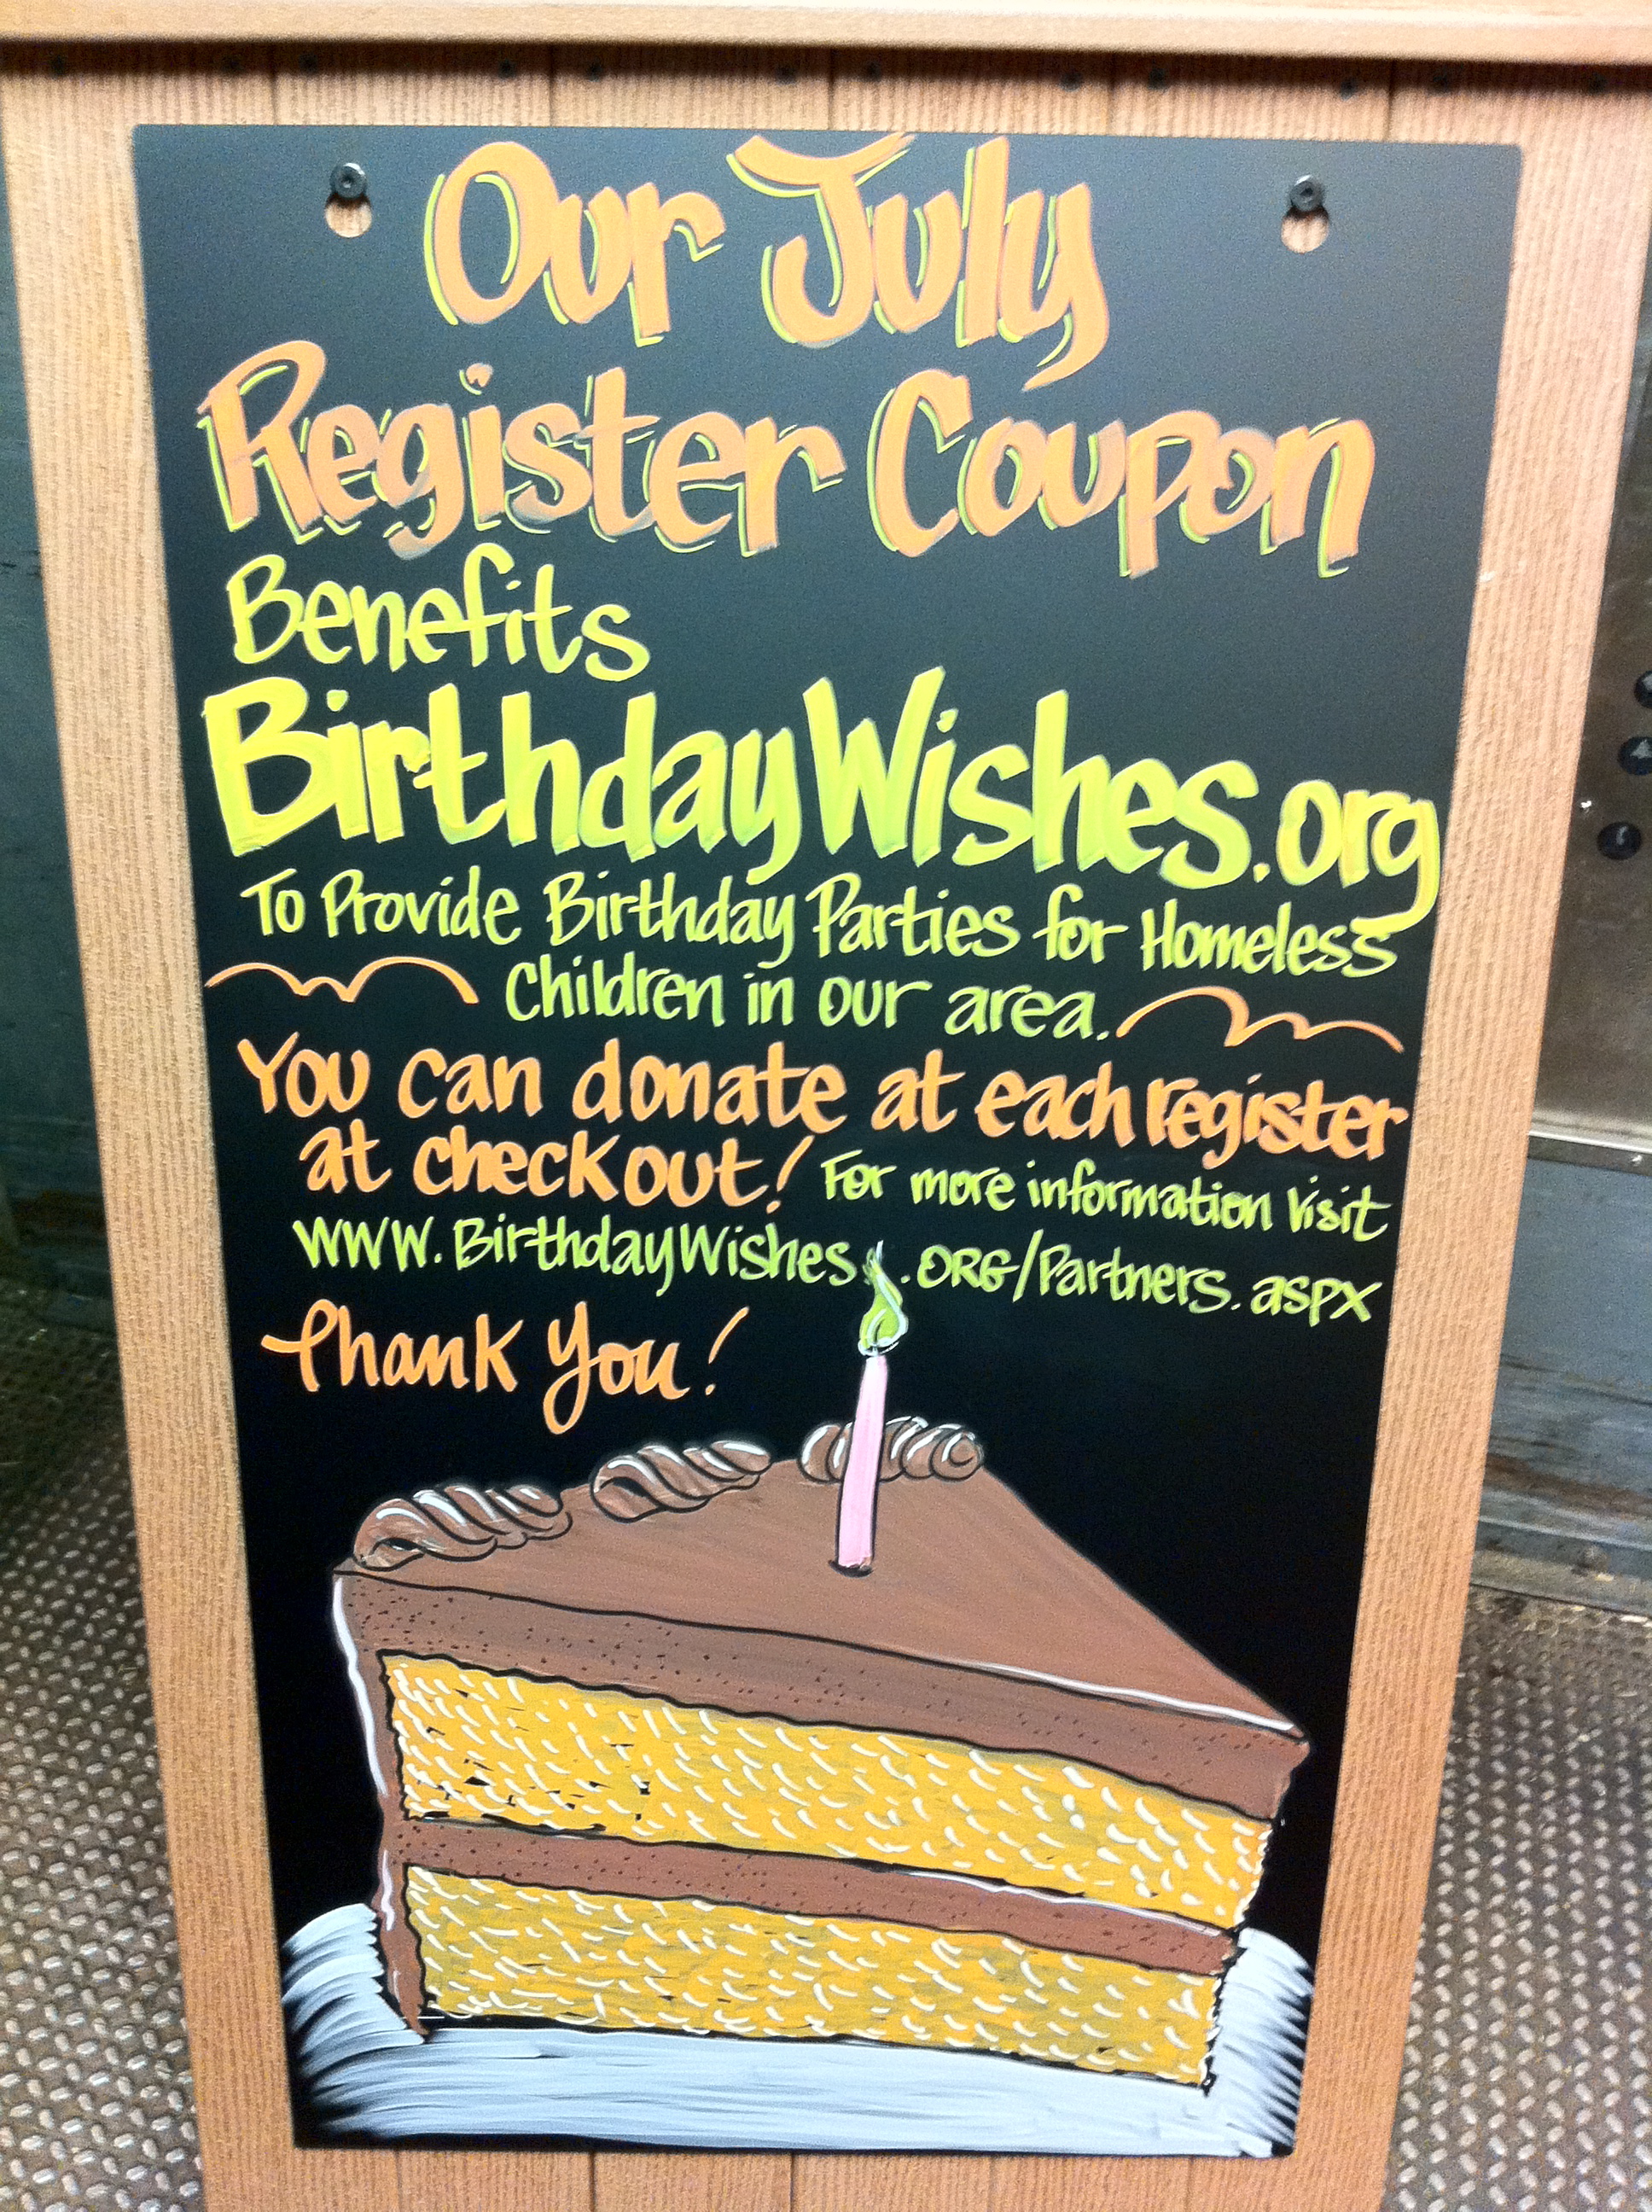 Our July
Register Coupon
Benefits
BirthdayWishes.org
To Provide Birthday Parties for Homeless
Children in our area.
You can donate at each register
at checkout! For more information Visit
WWW.BirthdayWishes.ORG/Partners.aspx
Thank You!